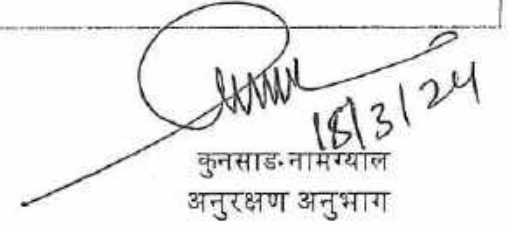 18/3/24
कुनसाङ नामग्याल
अनुरक्षण अनुभाग